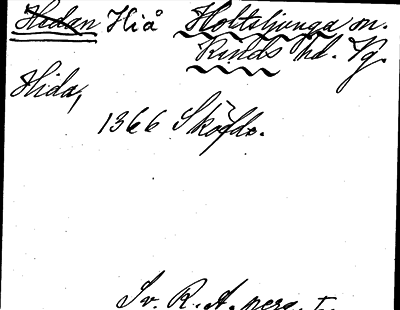 Hedan Hiå Holtsljunga sn.
Kinds hd. Vg.
Hida,
1366 Sköflde.
Sv. R. A. perg.